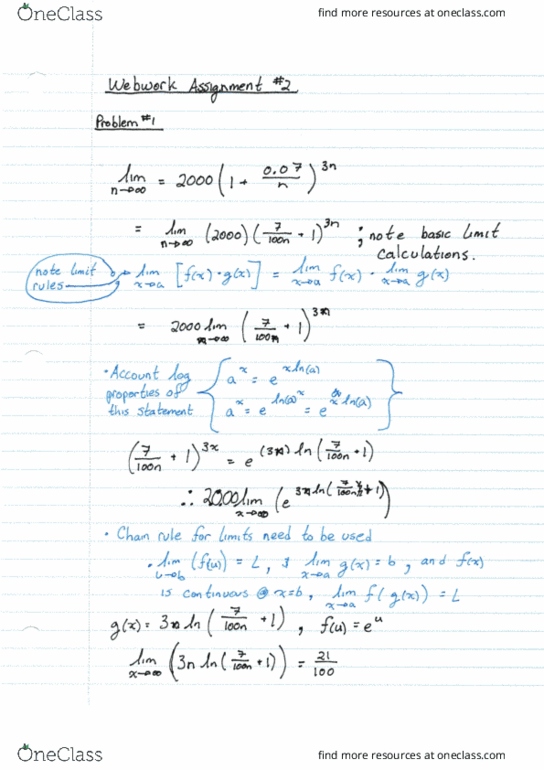 OneClass
find more resources at oneclass.com
Webwork Assignment #2
Problem #1
lim n→∞ = 2000 (1 + 0.07/n)^3n
= lim n→∞ (2000) (7/100n + 1)^3n ; note basic limit
calculations.
note limit rules → lim x→a [f(x)·g(x)] = lim x→a f(x) · lim x→a g(x)
= 2000 lim n→∞ (7/100n + 1)^3n
• Account log
properties of
this statement
a^x = e^xln(a)
a^x = e^ln(a)^x = e^x ln(a)
(7/100n + 1)^3x = e^(3n) ln(7/100n + 1)
∴ 2000 lim x→∞ (e^3n ln(7/100n + 1))
• Chain rule for limits need to be used
• lim u→b (f(u)) = L, & lim x→a g(x) = b, and f(x)
is continuous @ x=b, lim x→a f(g(x)) = L
g(x) = 3n ln (7/100n + 1), f(u) = e^u
lim x→∞ (3n ln(7/100n + 1)) = 21/100
OneClass
find more resources at oneclass.com